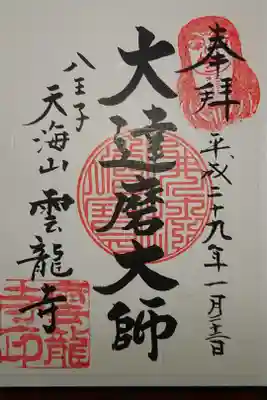 奉拝
平成二十九年一月三日
大達磨大師
八王子
天海山雲龍寺
雲龍寺印